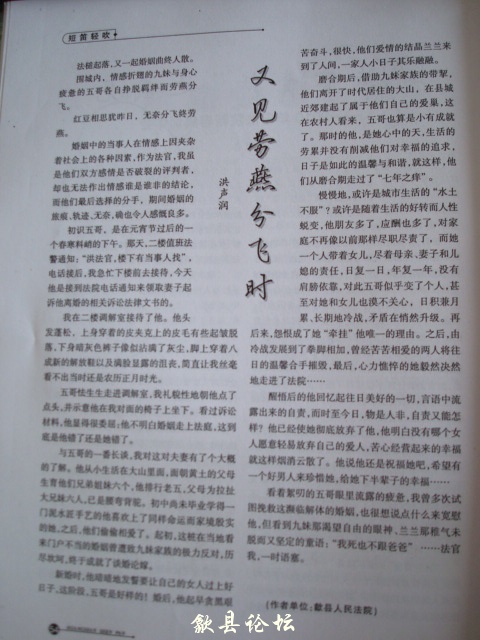 短笛轻吹
又见劳燕分飞时
洪声润
法槌起落，又一起婚姻曲终人散。
围城内，情感折翅的九妹与身心
疲惫的五哥各自挣脱羁绊而劳燕分
飞。
红豆相思犹昨日，无奈分飞终劳
燕。
婚姻中的当事人在情感上因夹杂
着社会上的各种因素，作为法官，我虽
是他们双方感情是否破裂的评判者，
却也无法作出情感谁是谁非的结论，
而他们最后选择的分手，期间婚姻的
旅痕、轨迹、无奈，确也令人感慨良多。
初识五哥，是在元宵节过后的一
个春寒料峭的下午。那天，二楼值班法
警通知：“洪法官，楼下有当事人找”，
电话接后，我急忙下楼前去接待，今天
他是接到法院电话通知来领取妻子起
诉他离婚的相关诉讼法律文书的。
我在二楼调解室接待了他。他头
发蓬松，上身穿着的皮夹克上的皮毛有些起皱脱
落，下身暗灰色裤子像似沾满了灰尘，脚上穿着八
成新的解放鞋以及满脸显露的沮丧，简直让我丝毫
看不出当时还是农历正月时光。
五哥怯生生走进调解室，我礼貌性地朝他点了
点头，并示意他在我对面的椅子上坐下。看过诉讼
材料，他显得很委屈：他不明白婚姻走上法庭，这到
底是他错了还是她错了。
与五哥的一番长谈，我对这对夫妻有了个大概
的了解。他从小生活在大山里面，面朝黄土的父母
生育他们兄弟姐妹六个，他排行老五，父母为拉扯
大兄妹六人，已是腰弯背驼。初中尚未毕业学得一
门泥水匠手艺的他喜欢上了同样命运而家境殷实
的她，之后，他们偷偷相爱了。起初，这桩在当地看
来门户不当的婚姻曾遭致九妹家族的极力反对，历
尽坎坷，终于成就了该婚论嫁。
新婚时，他暗暗地发誓要让自己的女人过上好
日子，这阶段，五哥是好样的！婚后，他起早贪黑艰
苦奋斗，很快，他们爱情的结晶兰兰来
到了人间，一家人小日子其乐融融。
磨合期后，借助九妹家族的帮挈，
他们离开了时代居住的大山，在县城
近郊建起了属于他们自己的爱巢，这
在农村人看来，五哥也算是小有成就
了。那时的他，是她心中的天，生活的
劳累并没有削减他们对幸福的追求，
日子是如此的温馨与和谐，就这样，他
们从磨合期走过了“七年之痒”。
慢慢地，或许是城市生活的“水土
不服”？或许是随着生活的好转而人性
蜕变，他朋友多了，应酬也多了，对家
庭不再像以前那样尽职尽责了，而她
一个人带着女儿，尽着母亲、妻子和儿
媳的责任，日复一日，年复一年，没有
肩膀依靠，对此五哥似乎变了个人，甚
至对她和女儿也漠不关心，日积兼月
累、长期地冷战，矛盾在悄然升级。再
后来，怨恨成了她“牵挂”他唯一的理由。之后，由
冷战发展到了拳脚相加，曾经苦苦相爱的两人将往
日的温馨合手摧毁，最后，心力憔悴的她毅然决然
地走进了法院……
醒悟后的他回忆起往日美好的一切，言语中流
露出来的自责，而时至今日，物是人非，自责又能怎
样？他已经使她彻底放弃了他，他明白没有哪个女
人愿意轻易放弃自己的爱人，苦心经营起来的幸福
就这样烟消云散了。他说他还是祝福她吧，希望有
一个好男人来珍惜她，给她下半辈子的幸福……
看着絮叨的五哥眼里流露的疲惫，我曾多次试
图挽救这濒临解体的婚姻，也很想说点什么来宽慰
他，但看到九妹那渴望自由的眼神、兰兰那稚气未
脱而又坚定的童语：“我死也不跟爸爸”……法官
我，一时语塞。
（作者单位：歙县人民法院）
歙县论坛